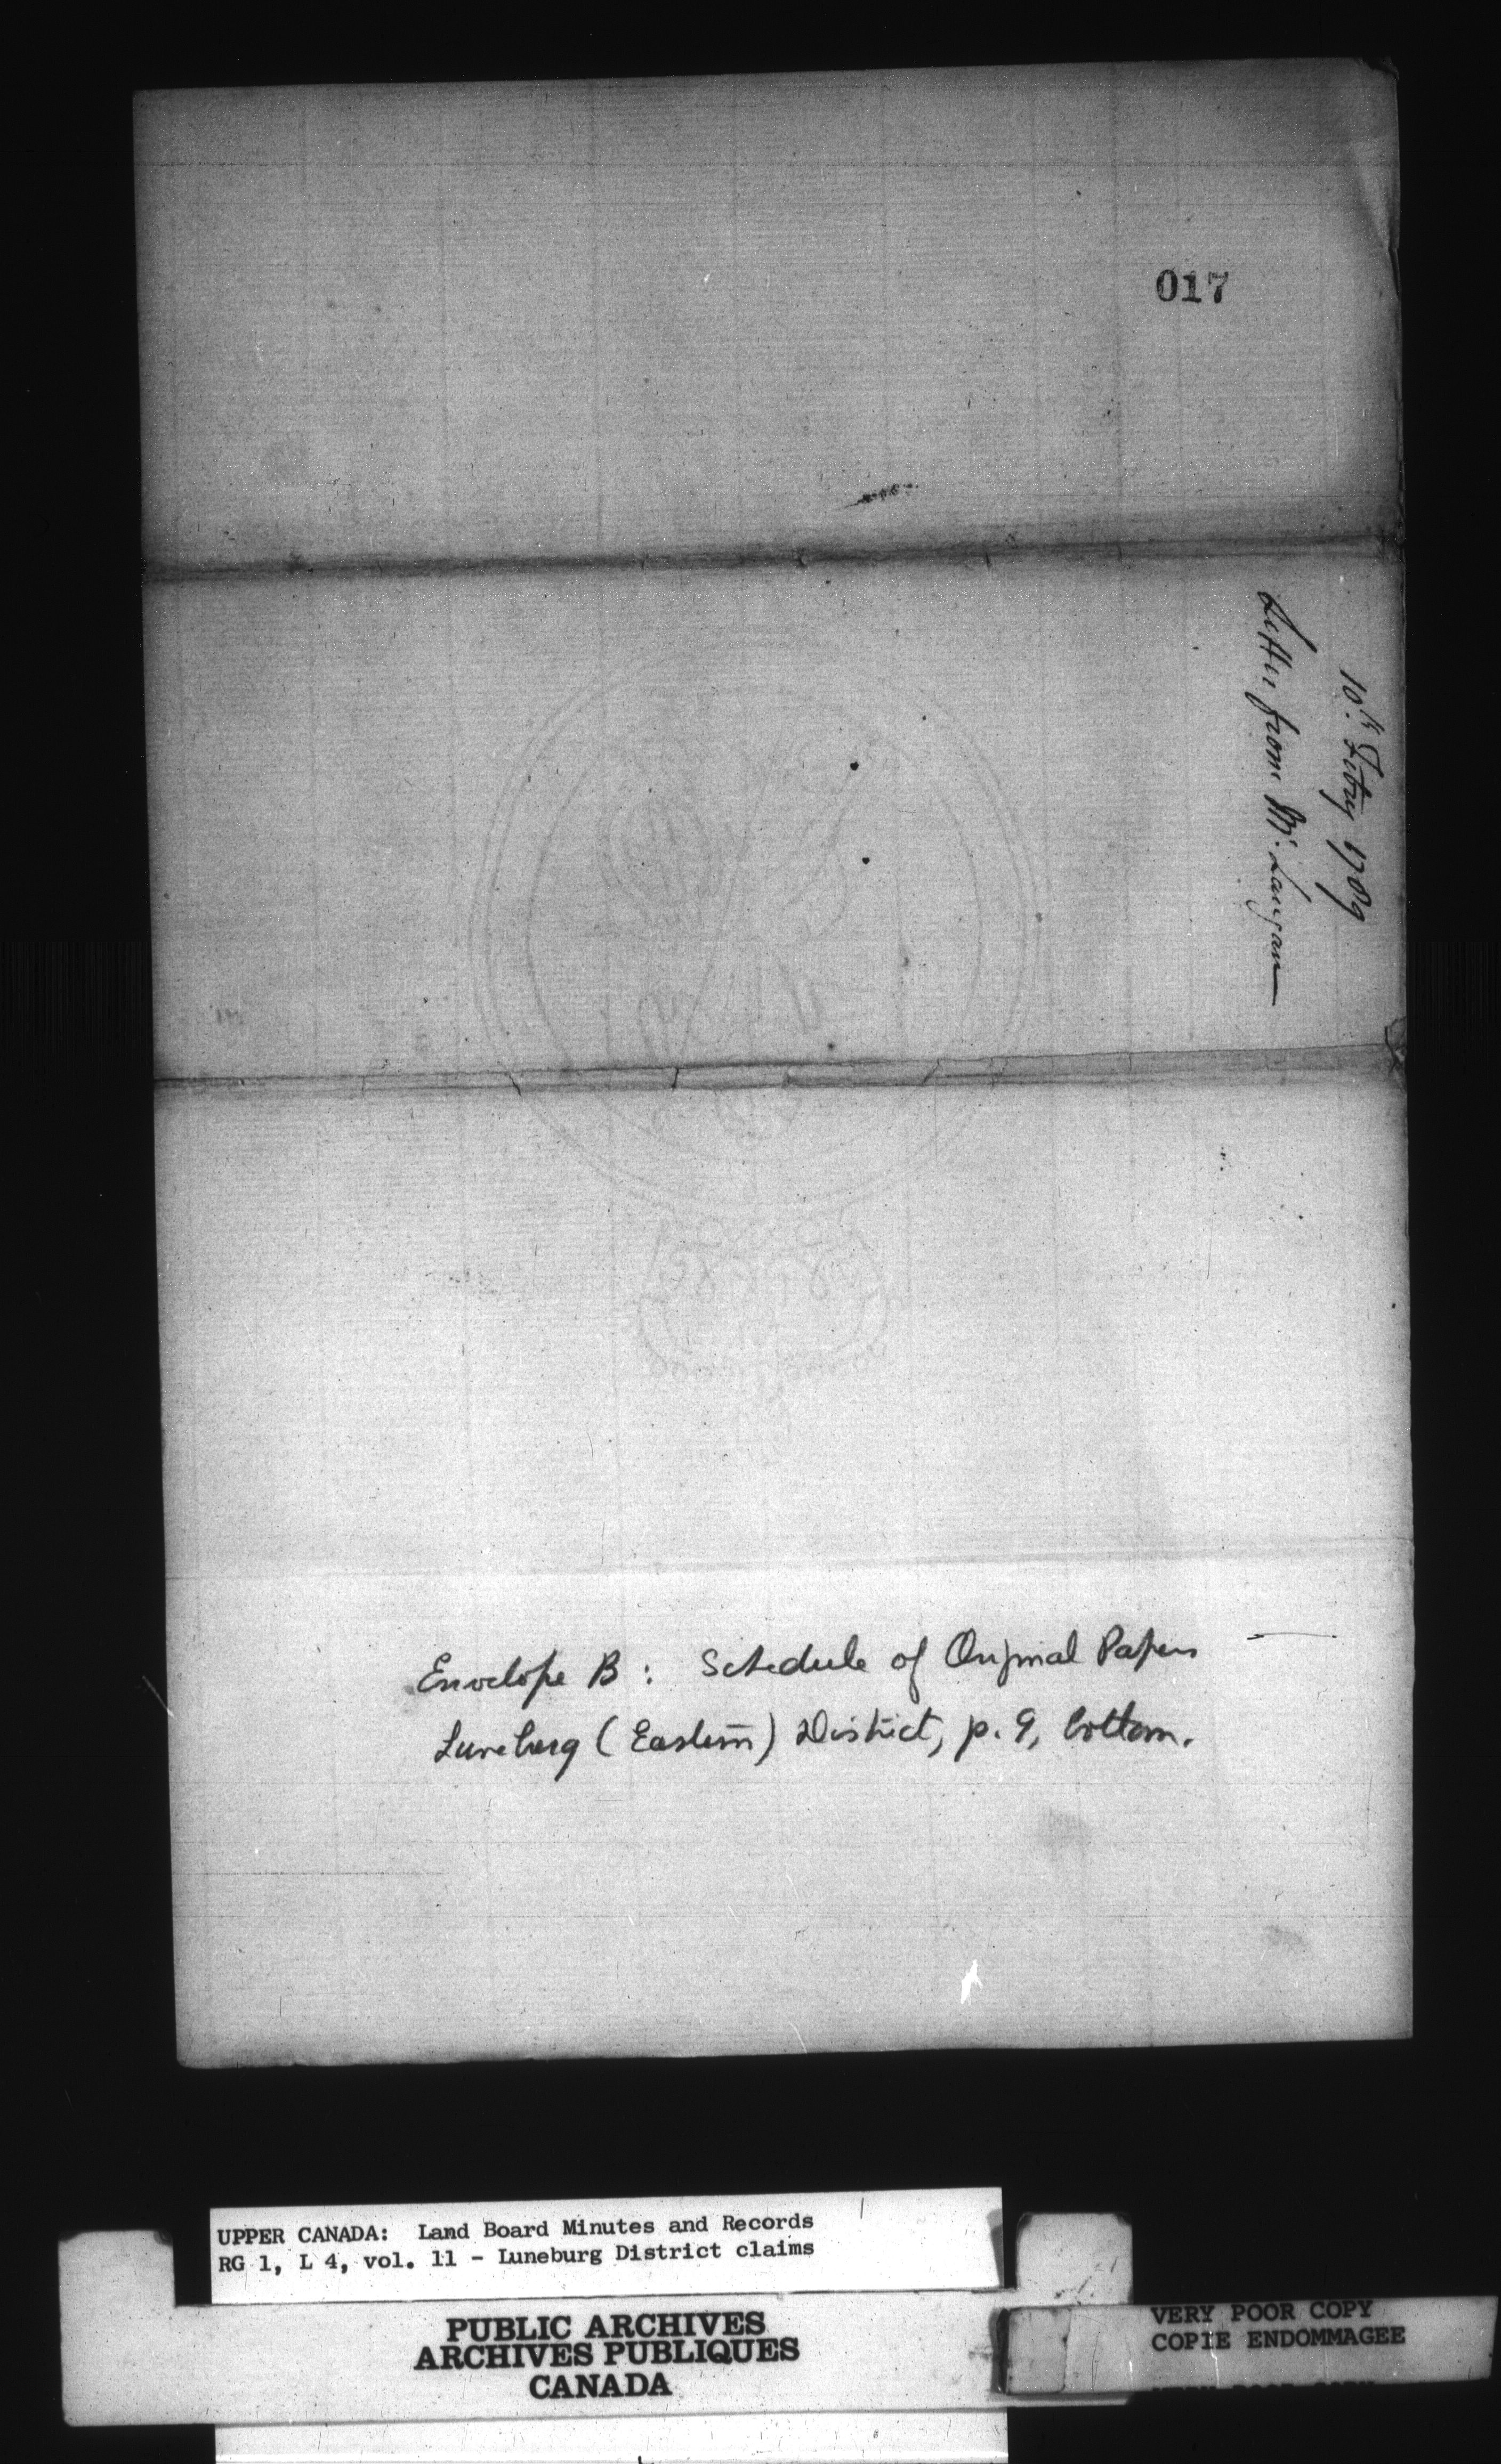 017
10th Febry 1789
Letter from Mr. Langan
Envelope B: Schedule of Original Papers
Luneburg (Eastern) District, p. 9, bottom.
UPPER CANADA: Land Board Minutes and Records
RG 1, L 4, vol. 11 - Luneburg District claims
PUBLIC ARCHIVES
ARCHIVES PUBLIQUES
CANADA
VERY POOR COPY
COPIE ENDOMMAGEE